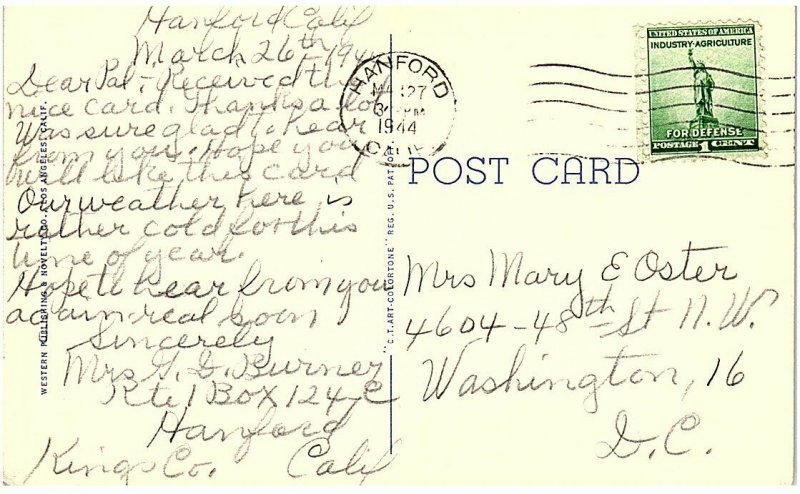 Hanford Calif
March 26th 1944
Dear Pal,- Received the
nice card. Thanks a lot
Was sure glad to hear
from you. Hope you
will like this card
Our weather here is
rather cold for this
time of year.
Hope to hear from you
again real soon
Sincerely
Mrs G. G. Burner
Rte 1 Box 124-C
Hanford
Kings Co. Calif
WESTERN PUBLISHING & NOVELTY CO., LOS ANGELES, CALIF.
"C.T. ART-COLORTONE" REG. U.S. PAT. OFF.
HANFORD
MAR 27
PM
1944
CALIF.
UNITED STATES OF AMERICA
INDUSTRY-AGRICULTURE
FOR DEFENSE
POSTAGE 1 CENT
POST CARD
Mrs Mary E Oster
4604-48th St N.W.
Washington, 16
D.C.